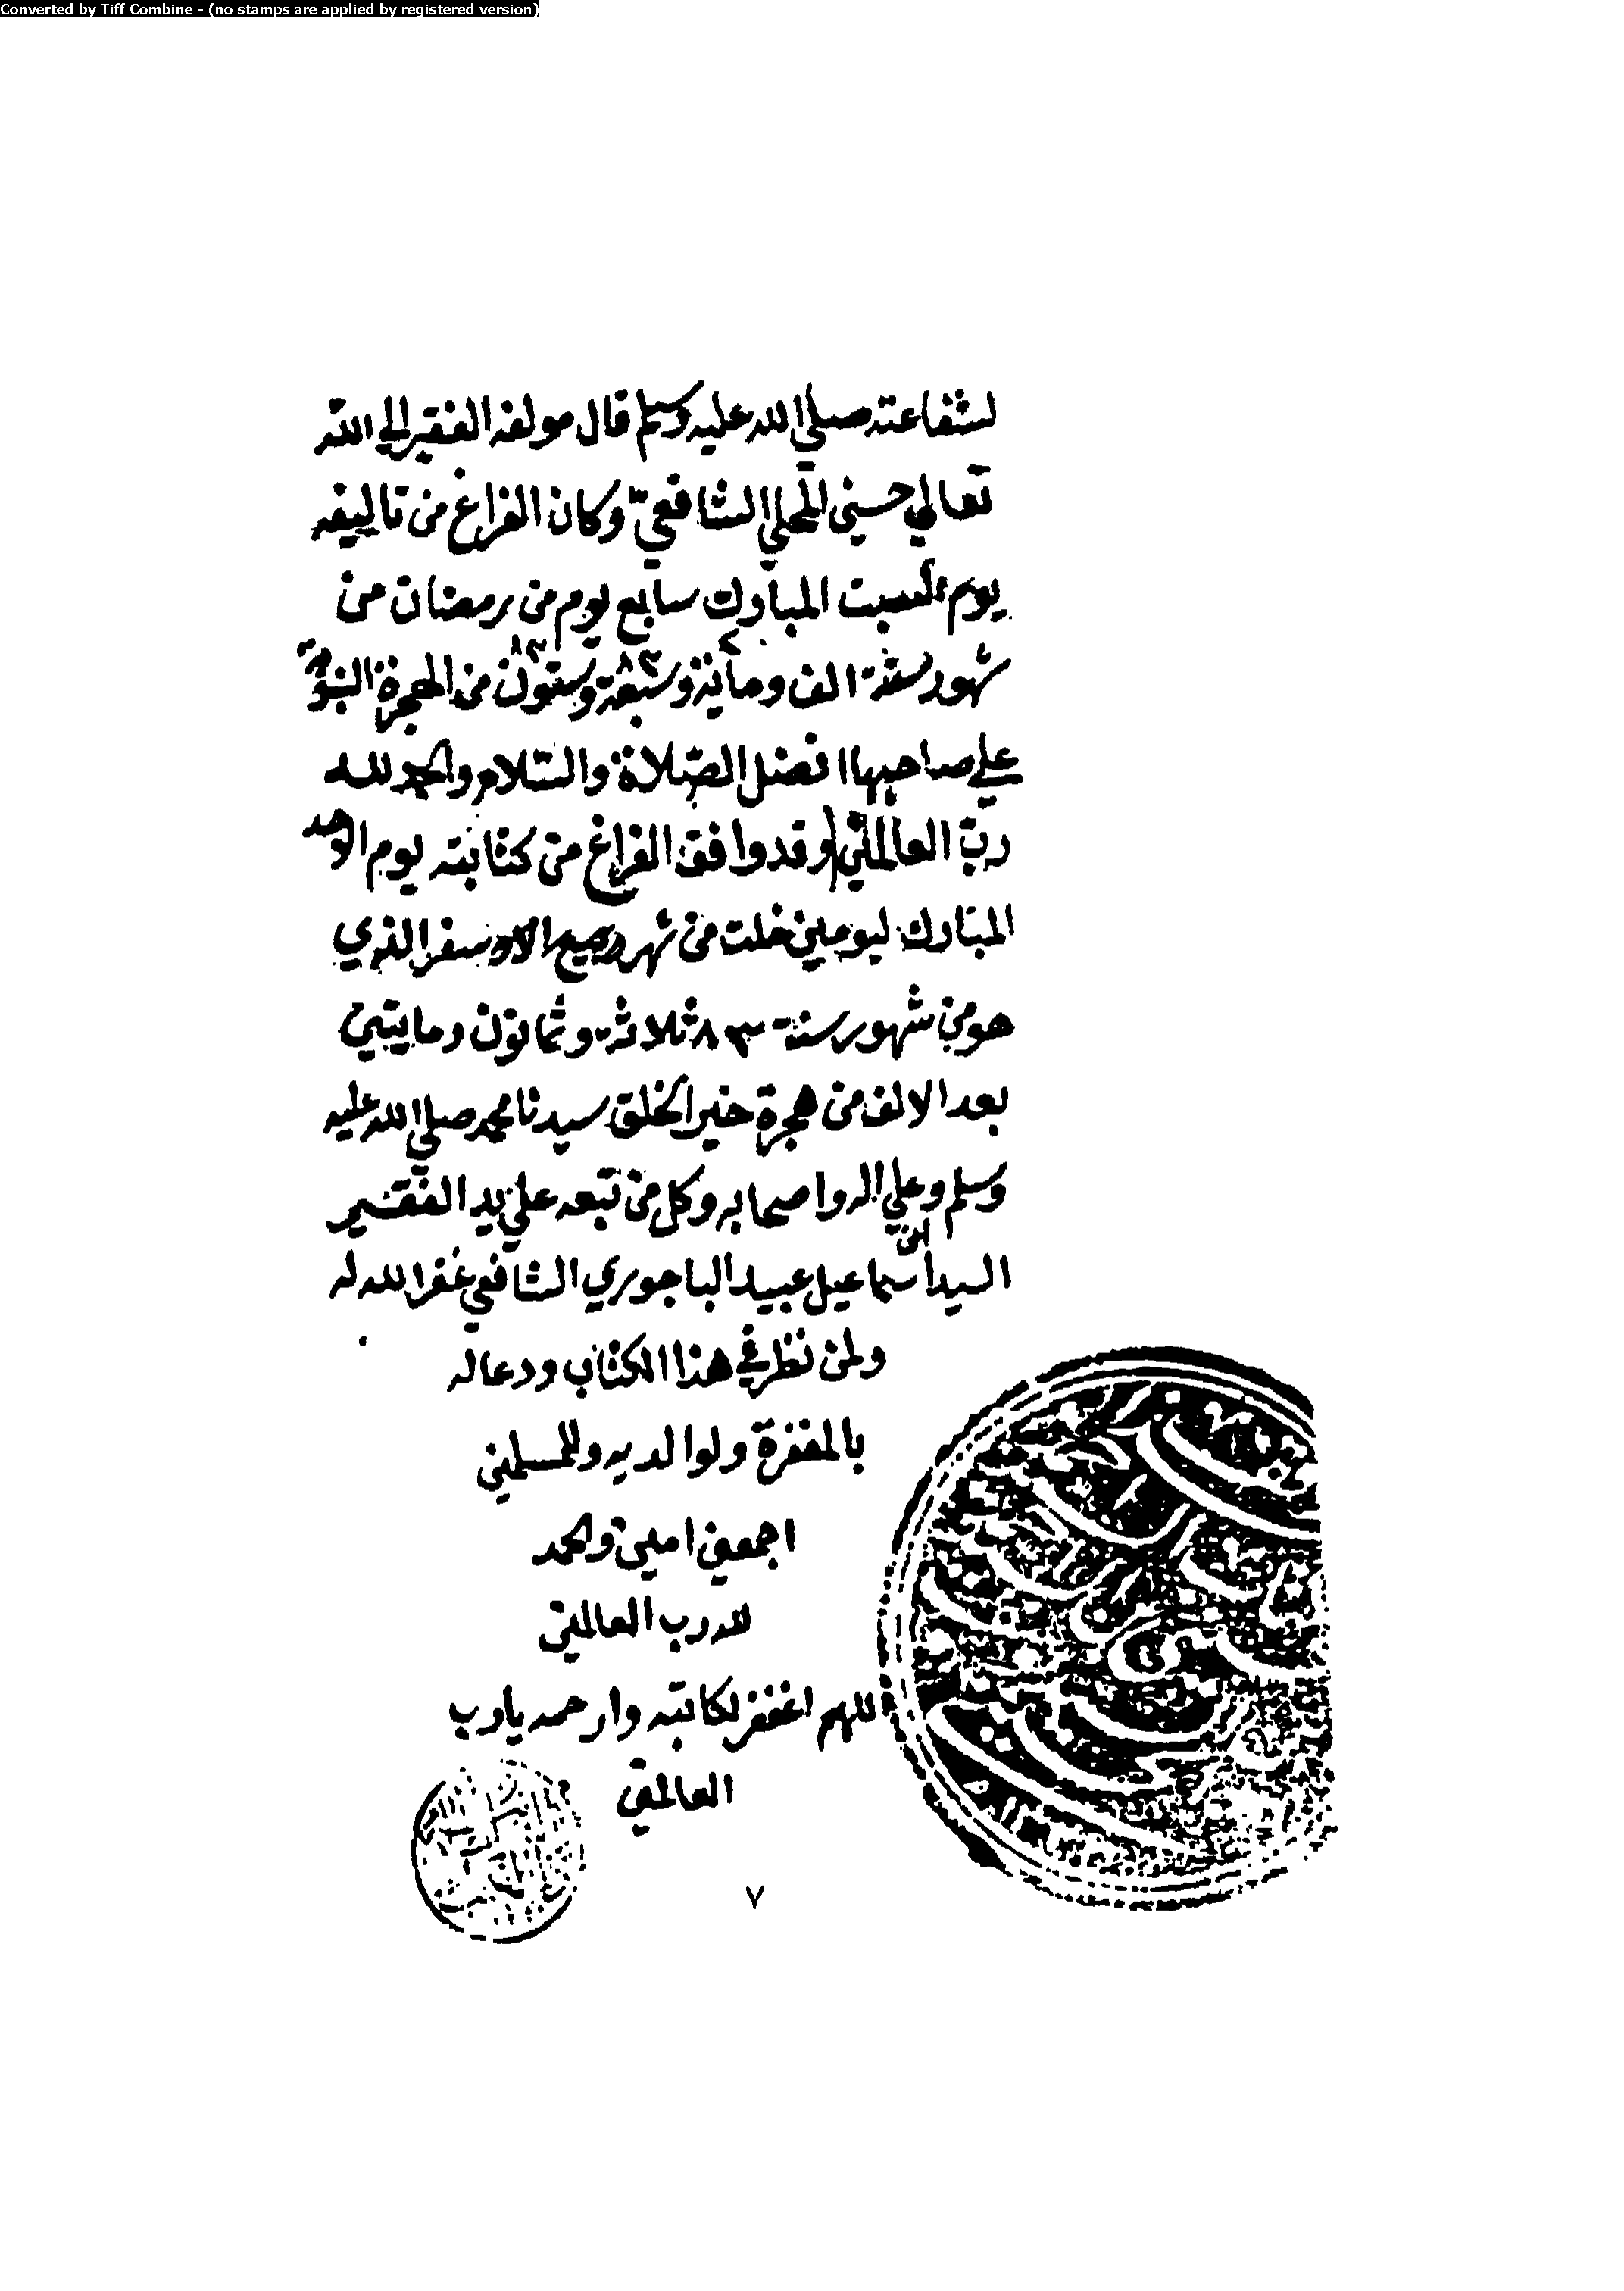 Converted by Tiff Combine - (no stamps are applied by registered version)
لشفاعته صلي الله عليه وسلم قال مولفه الفقير الي الله
تعالي حسني المحلي الشافعي وكان الفراغ من تاليفه
يوم السبت المبارك سابع يوم من رمضان من
شهور سنة الف ومأية وسبعة وستون من الهجرة النبوية
علي صاحبها افضل الصلاة والسلام والحمد لله
رب العالمين وقد وافق الفراغ من كتابته يوم الاحد
المبارك ليومين خلت من شهر ربيع الذي
هو من شهور سنة ٨٣ ثلاثة وثمانون ومايتين
بعد الالف من هجرة خير الخلق سيدنا محمد صلي الله عليه
وسلم وعلي اله واصحابه وكل من تبعه علي يد الفقير
السيد اسماعيل ابن عبيد الباجوري الشافعي غفر الله له
ولمن نظر في هذا الكتاب ودعا له
بالمغفرة ولوالديه وللمسلمين
اجمعين امين والحمد
لله رب العالمين
اللهم اغفر لكاتبه وارحمه يا رب
العالمين
٧